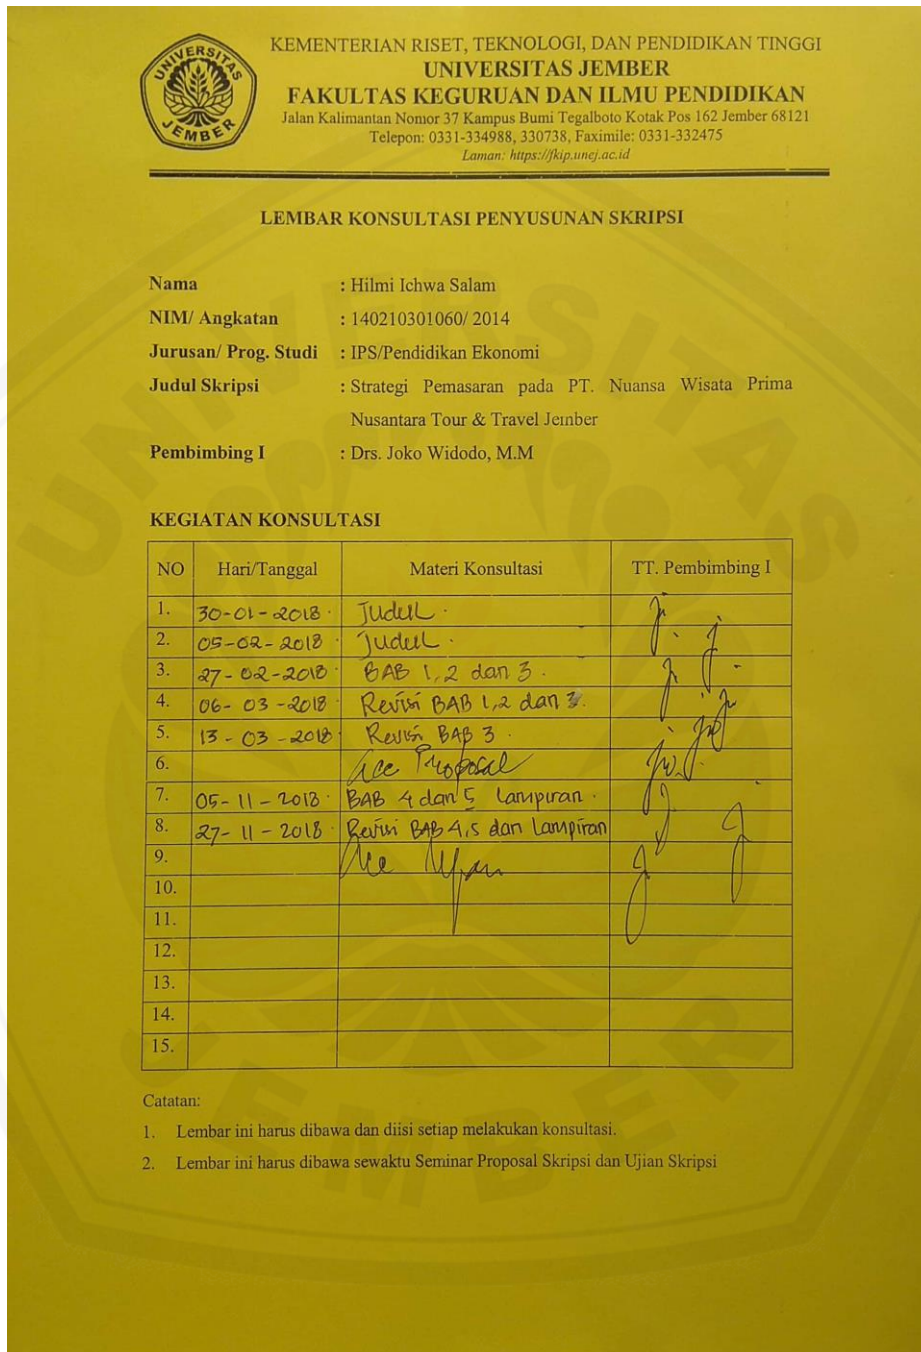 UNIVERSITAS
JEMBER
KEMENTERIAN RISET, TEKNOLOGI, DAN PENDIDIKAN TINGGI
UNIVERSITAS JEMBER
FAKULTAS KEGURUAN DAN ILMU PENDIDIKAN
Jalan Kalimantan Nomor 37 Kampus Bumi Tegalboto Kotak Pos 162 Jember 68121
Telepon: 0331-334988, 330738, Faximile: 0331-332475
Laman: https://fkip.unej.ac.id
LEMBAR KONSULTASI PENYUSUNAN SKRIPSI
Nama : Hilmi Ichwa Salam
NIM/ Angkatan : 140210301060/ 2014
Jurusan/ Prog. Studi : IPS/Pendidikan Ekonomi
Judul Skripsi : Strategi Pemasaran pada PT. Nuansa Wisata Prima
Nusantara Tour & Travel Jember
Pembimbing I : Drs. Joko Widodo, M.M
KEGIATAN KONSULTASI
NO Hari/Tanggal Materi Konsultasi TT. Pembimbing I
1. 30-01-2018 Judul
2. 05-02-2018 Judul
3. 27-02-2018 BAB 1, 2 dan 3
4. 06-03-2018 Revisi BAB 1,2 dan 3
5. 13-03-2018 Revisi BAB 3
6. Acc Proposal
7. 05-11-2018 BAB 4 dan 5 Lampiran
8. 27-11-2018 Revisi BAB 4,5 dan Lampiran
9. Acc
10.
11.
12.
13.
14.
15.
Catatan:
1. Lembar ini harus dibawa dan diisi setiap melakukan konsultasi.
2. Lembar ini harus dibawa sewaktu Seminar Proposal Skripsi dan Ujian Skripsi
UNIVERSITAS
JEMBER